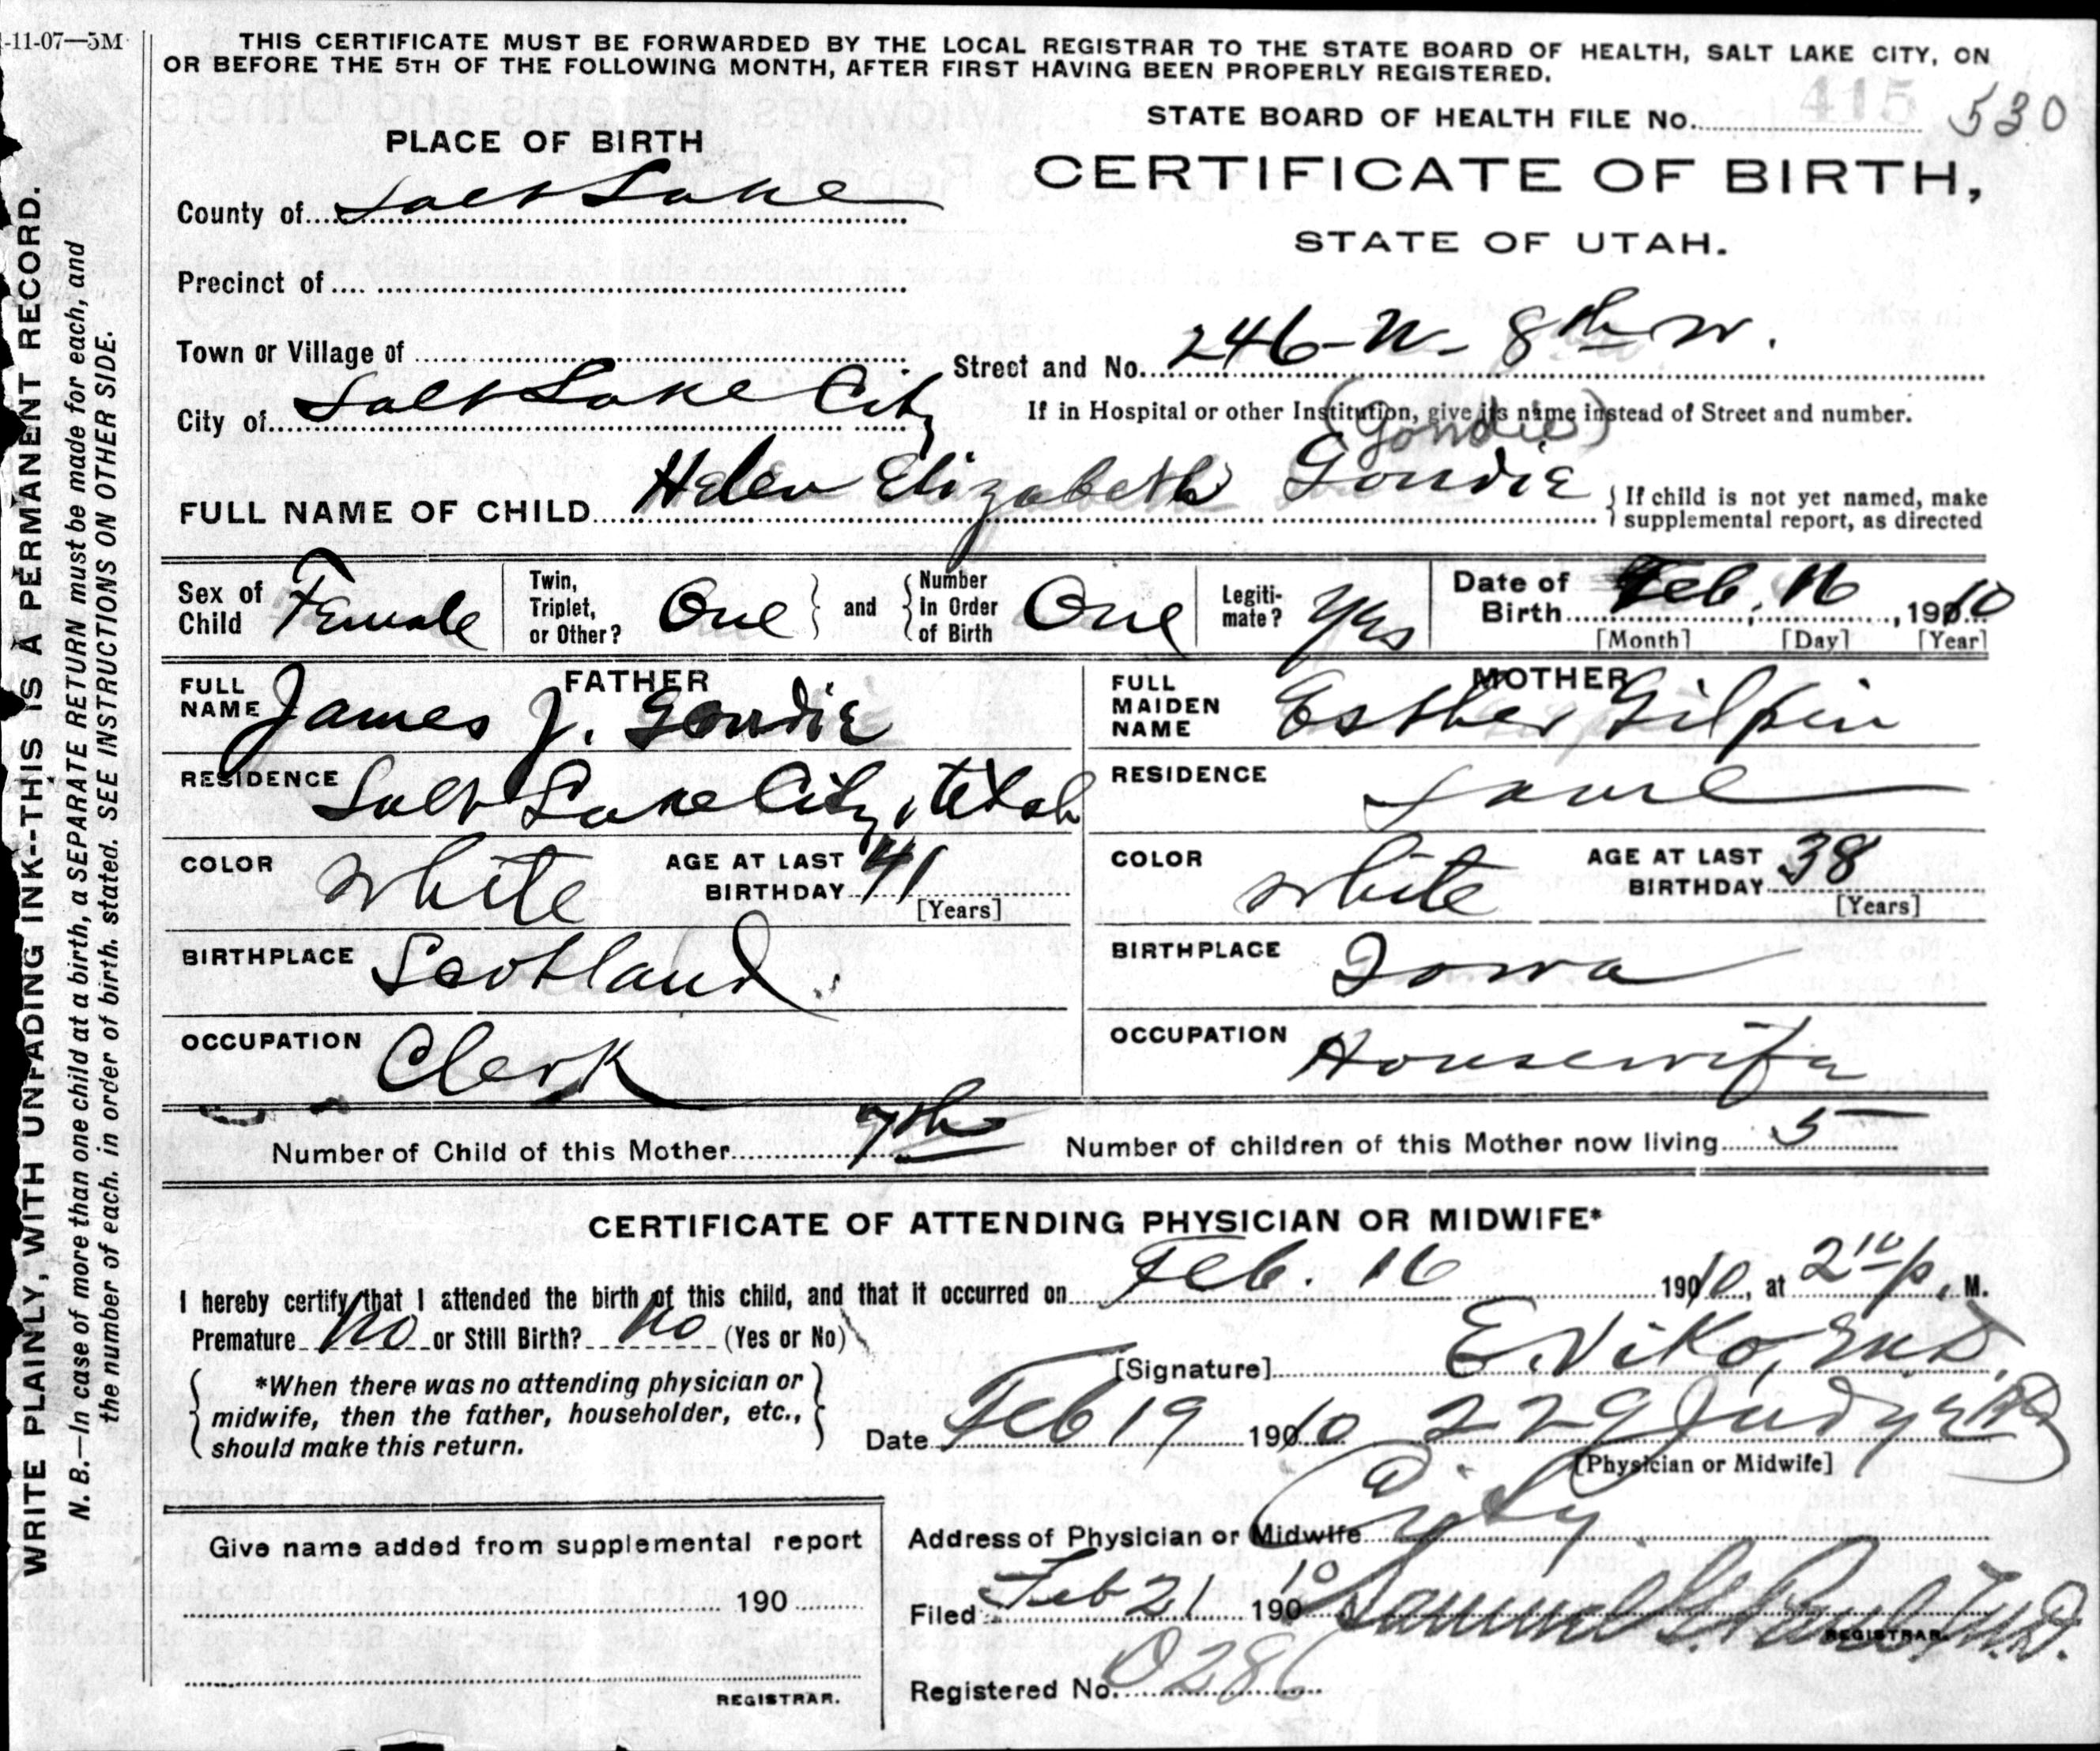 -11-07—5M
THIS CERTIFICATE MUST BE FORWARDED BY THE LOCAL REGISTRAR TO THE STATE BOARD OF HEALTH, SALT LAKE CITY, ON
OR BEFORE THE 5TH OF THE FOLLOWING MONTH, AFTER FIRST HAVING BEEN PROPERLY REGISTERED.
STATE BOARD OF HEALTH FILE No. 415 530
PLACE OF BIRTH
CERTIFICATE OF BIRTH,
STATE OF UTAH.
County of Salt Lake
Precinct of
Town or Village of
Street and No. 246-N- 8th W.
City of Salt Lake City
If in Hospital or other Institution, give its name instead of Street and number.
(Goudie)
FULL NAME OF CHILD Helen Elizabeth Goudie
If child is not yet named, make
supplemental report, as directed
Sex of Child Female
Twin, Triplet, or Other? One and Number in Order of Birth One
Legitimate? Yes
Date of Birth Feb. 16, 1910
[Month] [Day] [Year]
FATHER
FULL NAME James J. Goudie
RESIDENCE Salt Lake City, Utah
COLOR White AGE AT LAST BIRTHDAY 41
[Years]
BIRTHPLACE Scotland
OCCUPATION Clerk
MOTHER
FULL MAIDEN NAME Esther Gilpin
RESIDENCE Same
COLOR White AGE AT LAST BIRTHDAY 38
[Years]
BIRTHPLACE Iowa
OCCUPATION Housewife
Number of Child of this Mother 7th Number of children of this Mother now living 5
CERTIFICATE OF ATTENDING PHYSICIAN OR MIDWIFE*
I hereby certify that I attended the birth of this child, and that it occurred on Feb. 16 1910, at 2 10 p. M.
Premature No or Still Birth? No (Yes or No)
[Signature] E. Viko, M.D.
*When there was no attending physician or
midwife, then the father, householder, etc.,
should make this return.
Date Feb 19 1910 229 Judge Bldg
[Physician or Midwife]
Address of Physician or Midwife City
Give name added from supplemental report
190
REGISTRAR.
Filed Feb 21 1910 Samuel G. Paul, M.D.
REGISTRAR.
Registered No. 0286
WRITE PLAINLY, WITH UNFADING INK--THIS IS A PERMANENT RECORD.
N. B.—In case of more than one child at a birth, a SEPARATE RETURN must be made for each, and
the number of each. in order of birth. stated. SEE INSTRUCTIONS ON OTHER SIDE.